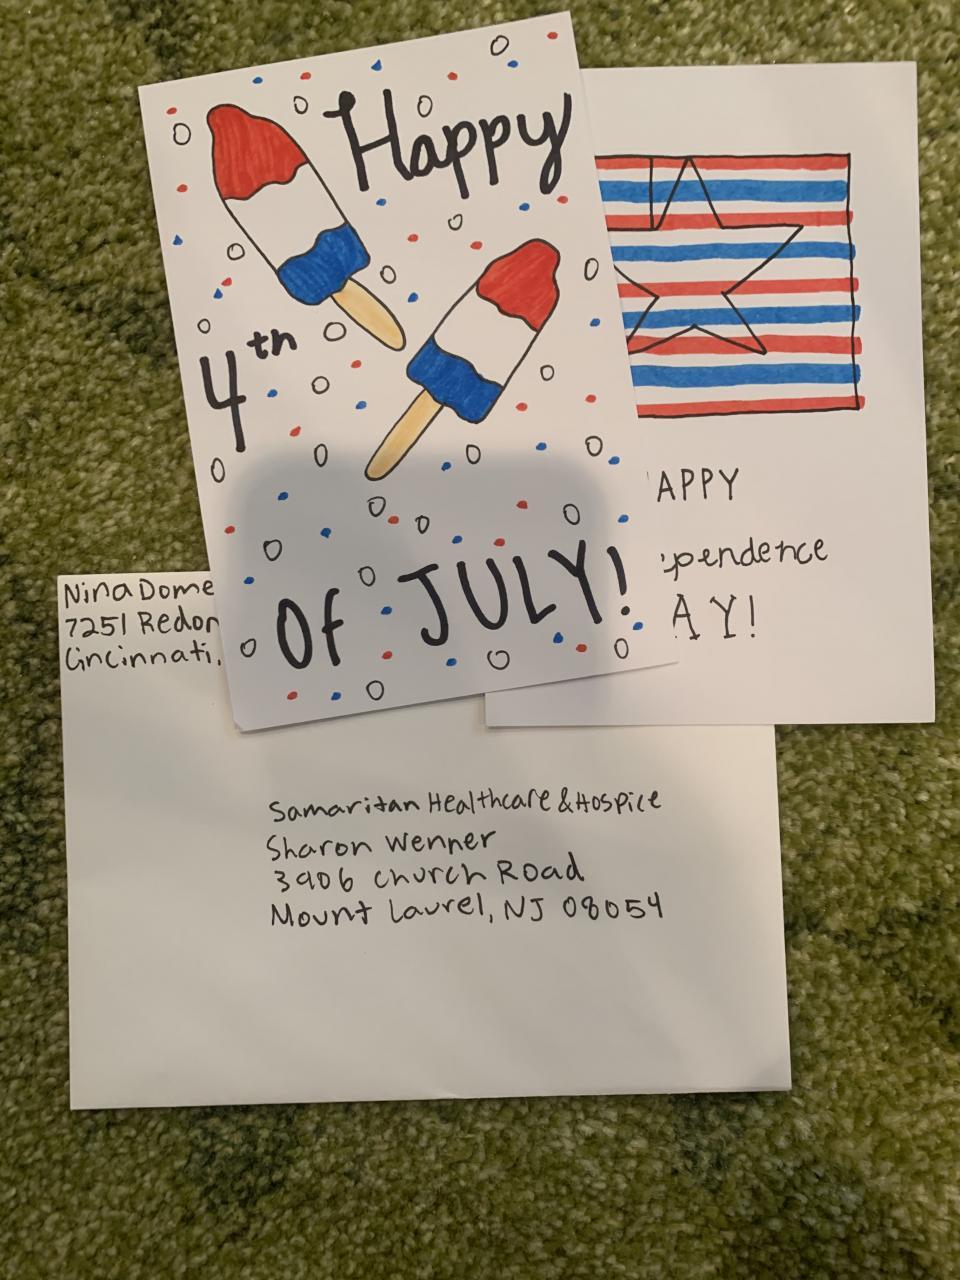 Happy
4th
Of JULY!
APPY
pendence
AY!
Nina Dome
7251 Redon
Cincinnati,
Samaritan Healthcare & Hospice
Sharon Wenner
3906 Church Road
Mount Laurel, NJ 08054